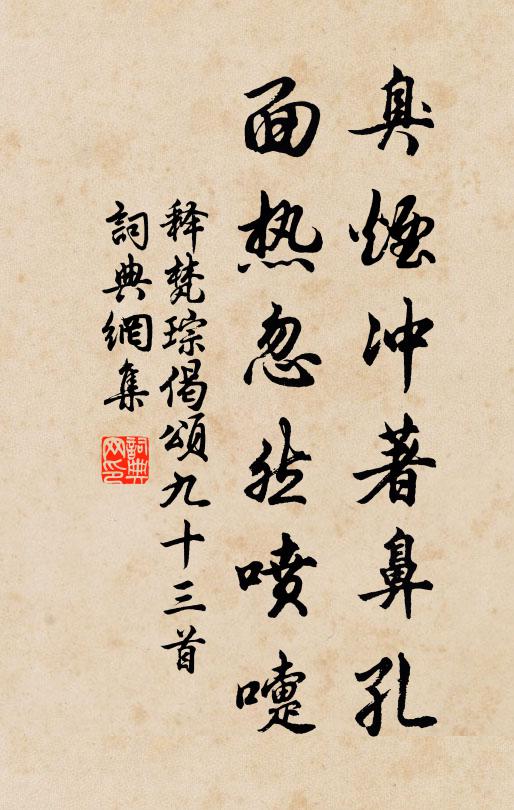 臭煙冲著鼻孔
面热忽然喷嚏
释梵琮偈頌九十三首
詞典網集
詞典网印